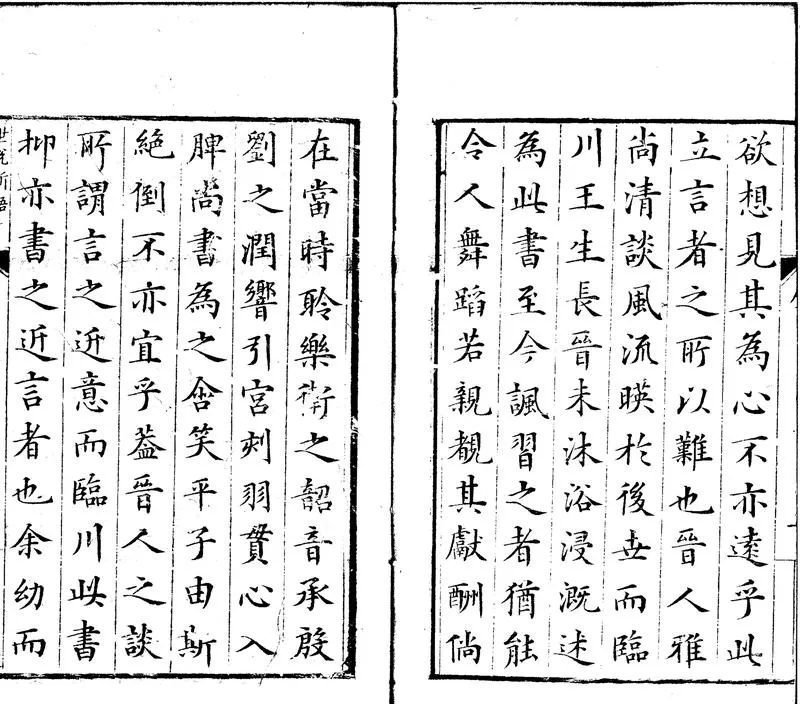 欲想見其為心不亦遠乎此
立言者之所以難也晉人雅
尚清談風流暎於後世而臨
川王生長晉末沐浴浸溉述
為此書至今諷習之者猶能
令人舞蹈若親覩其獻酬倘
在當時聆樂衛之韶音承殷
劉之潤響引宮刻羽貫心入
脾尚書為之含笑平子由斯
絕倒不亦宜乎葢晉人之談
所謂言之近意而臨川此書
抑亦書之近言者也余幼而
世說新語